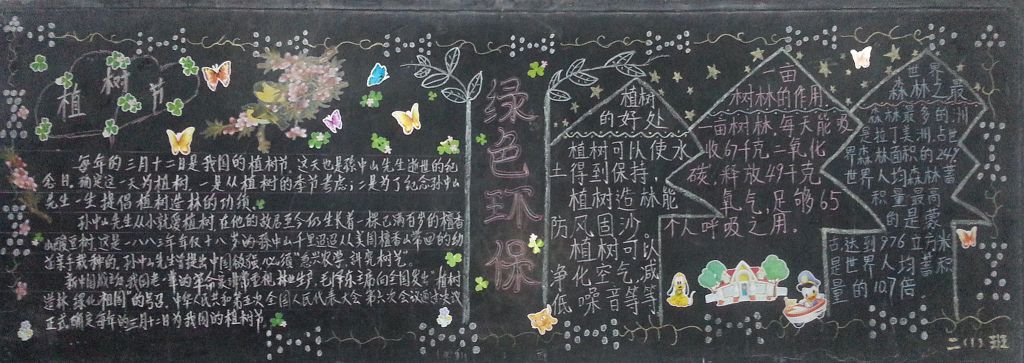 植树节
每年的三月十二日是我国的植树节。这天也是孙中山先生逝世的纪
念日。确定这一天为植树,一是从植树的季节考虑;二是为了纪念孙中山
先生一生提倡植树造林的功绩。
孙中山先生从小就爱植树,在他的故居至今仍生长着一棵已满百岁的檀香
山酸豆树。这是一八八三年
十八岁的孙中山千里迢迢从美国檀香山带回的幼
苗亲手栽种的。孙中山先生曾提出中国欲强,必须"急兴农学,讲究树艺"。
新中国成立后
毛泽东主席向全国发出"植树
造林,绿化祖国"的号召,中华人民共和国第五次全国人民代表大会第六次会议通过决议
正式确定每年的三月十二日为我国的植树节。
绿色环保
植树
的好处
植树可以使水
土得到保持,
植树造林能
防风固沙,
植树可以
净化空气,减
低噪音等等
一亩
树林的作用
一亩树林,每天能吸
收67千克二氧化
碳,释放49千克
氧气,足够65
人呼吸之用。
世界
森林之最
森林最多的洲
是拉丁美洲,占世
界森林面积的24%
世界人均森林蓄
积量最高
的是蒙
古,达到976立方米
是世界人均蓄积
量的10.7倍。
二(1)班